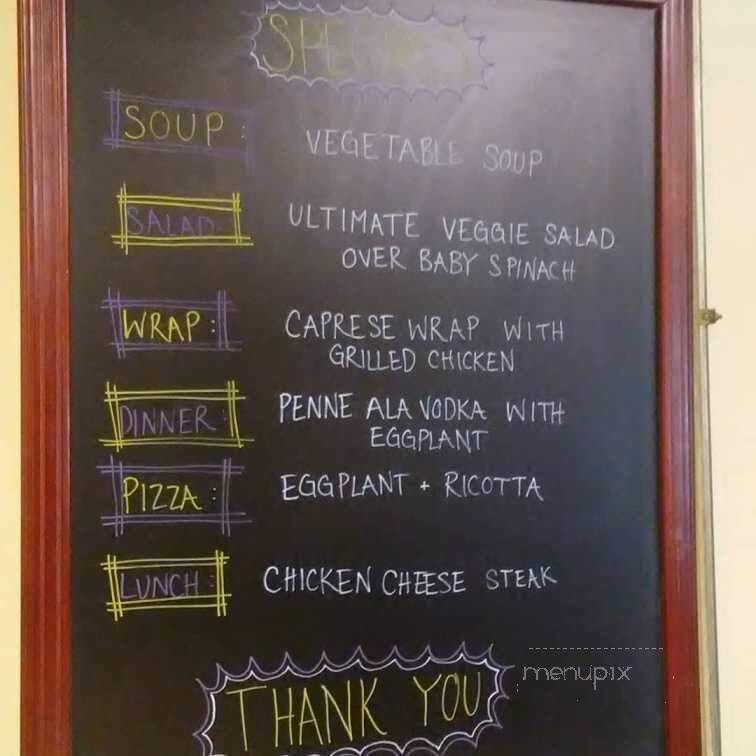 SPECIALS
SOUP: VEGETABLE SOUP
SALAD: ULTIMATE VEGGIE SALAD
OVER BABY SPINACH
WRAP: CAPRESE WRAP WITH
GRILLED CHICKEN
DINNER: PENNE ALA VODKA WITH
EGGPLANT
PIZZA: EGGPLANT + RICOTTA
LUNCH: CHICKEN CHEESE STEAK
THANK YOU
menupix